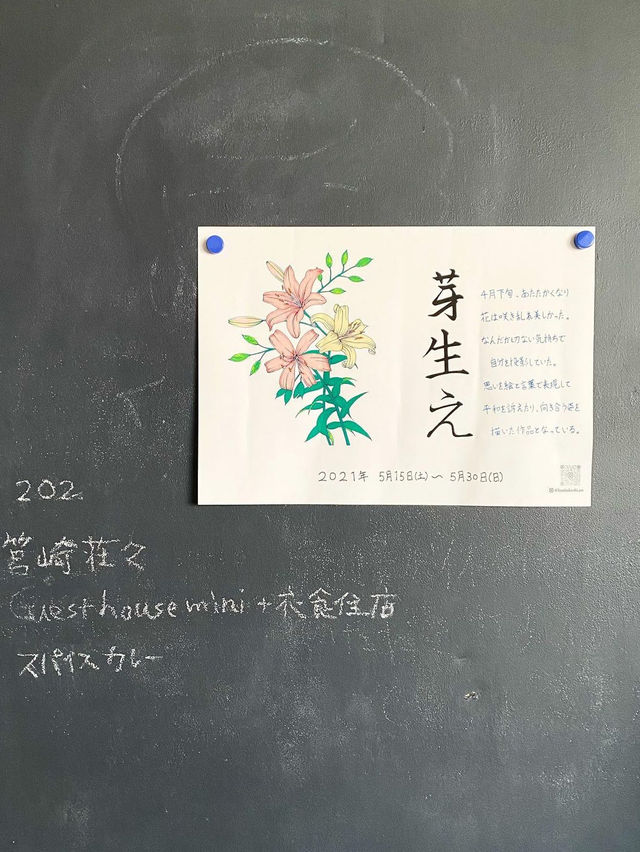 芽生え
4月下旬、あたたかくなり
花は咲き乱れ美しかった。
なんだか切ない気持ちで
自分を投影していた。
思いを絵と言葉で表現して
平和を訴えたり、向き合う姿を
描いた作品となっている。
2021年 5月15日(土)〜 5月30日(日)
202
筥崎荘々
Guesthouse mini+衣食住店
スパイスカレー